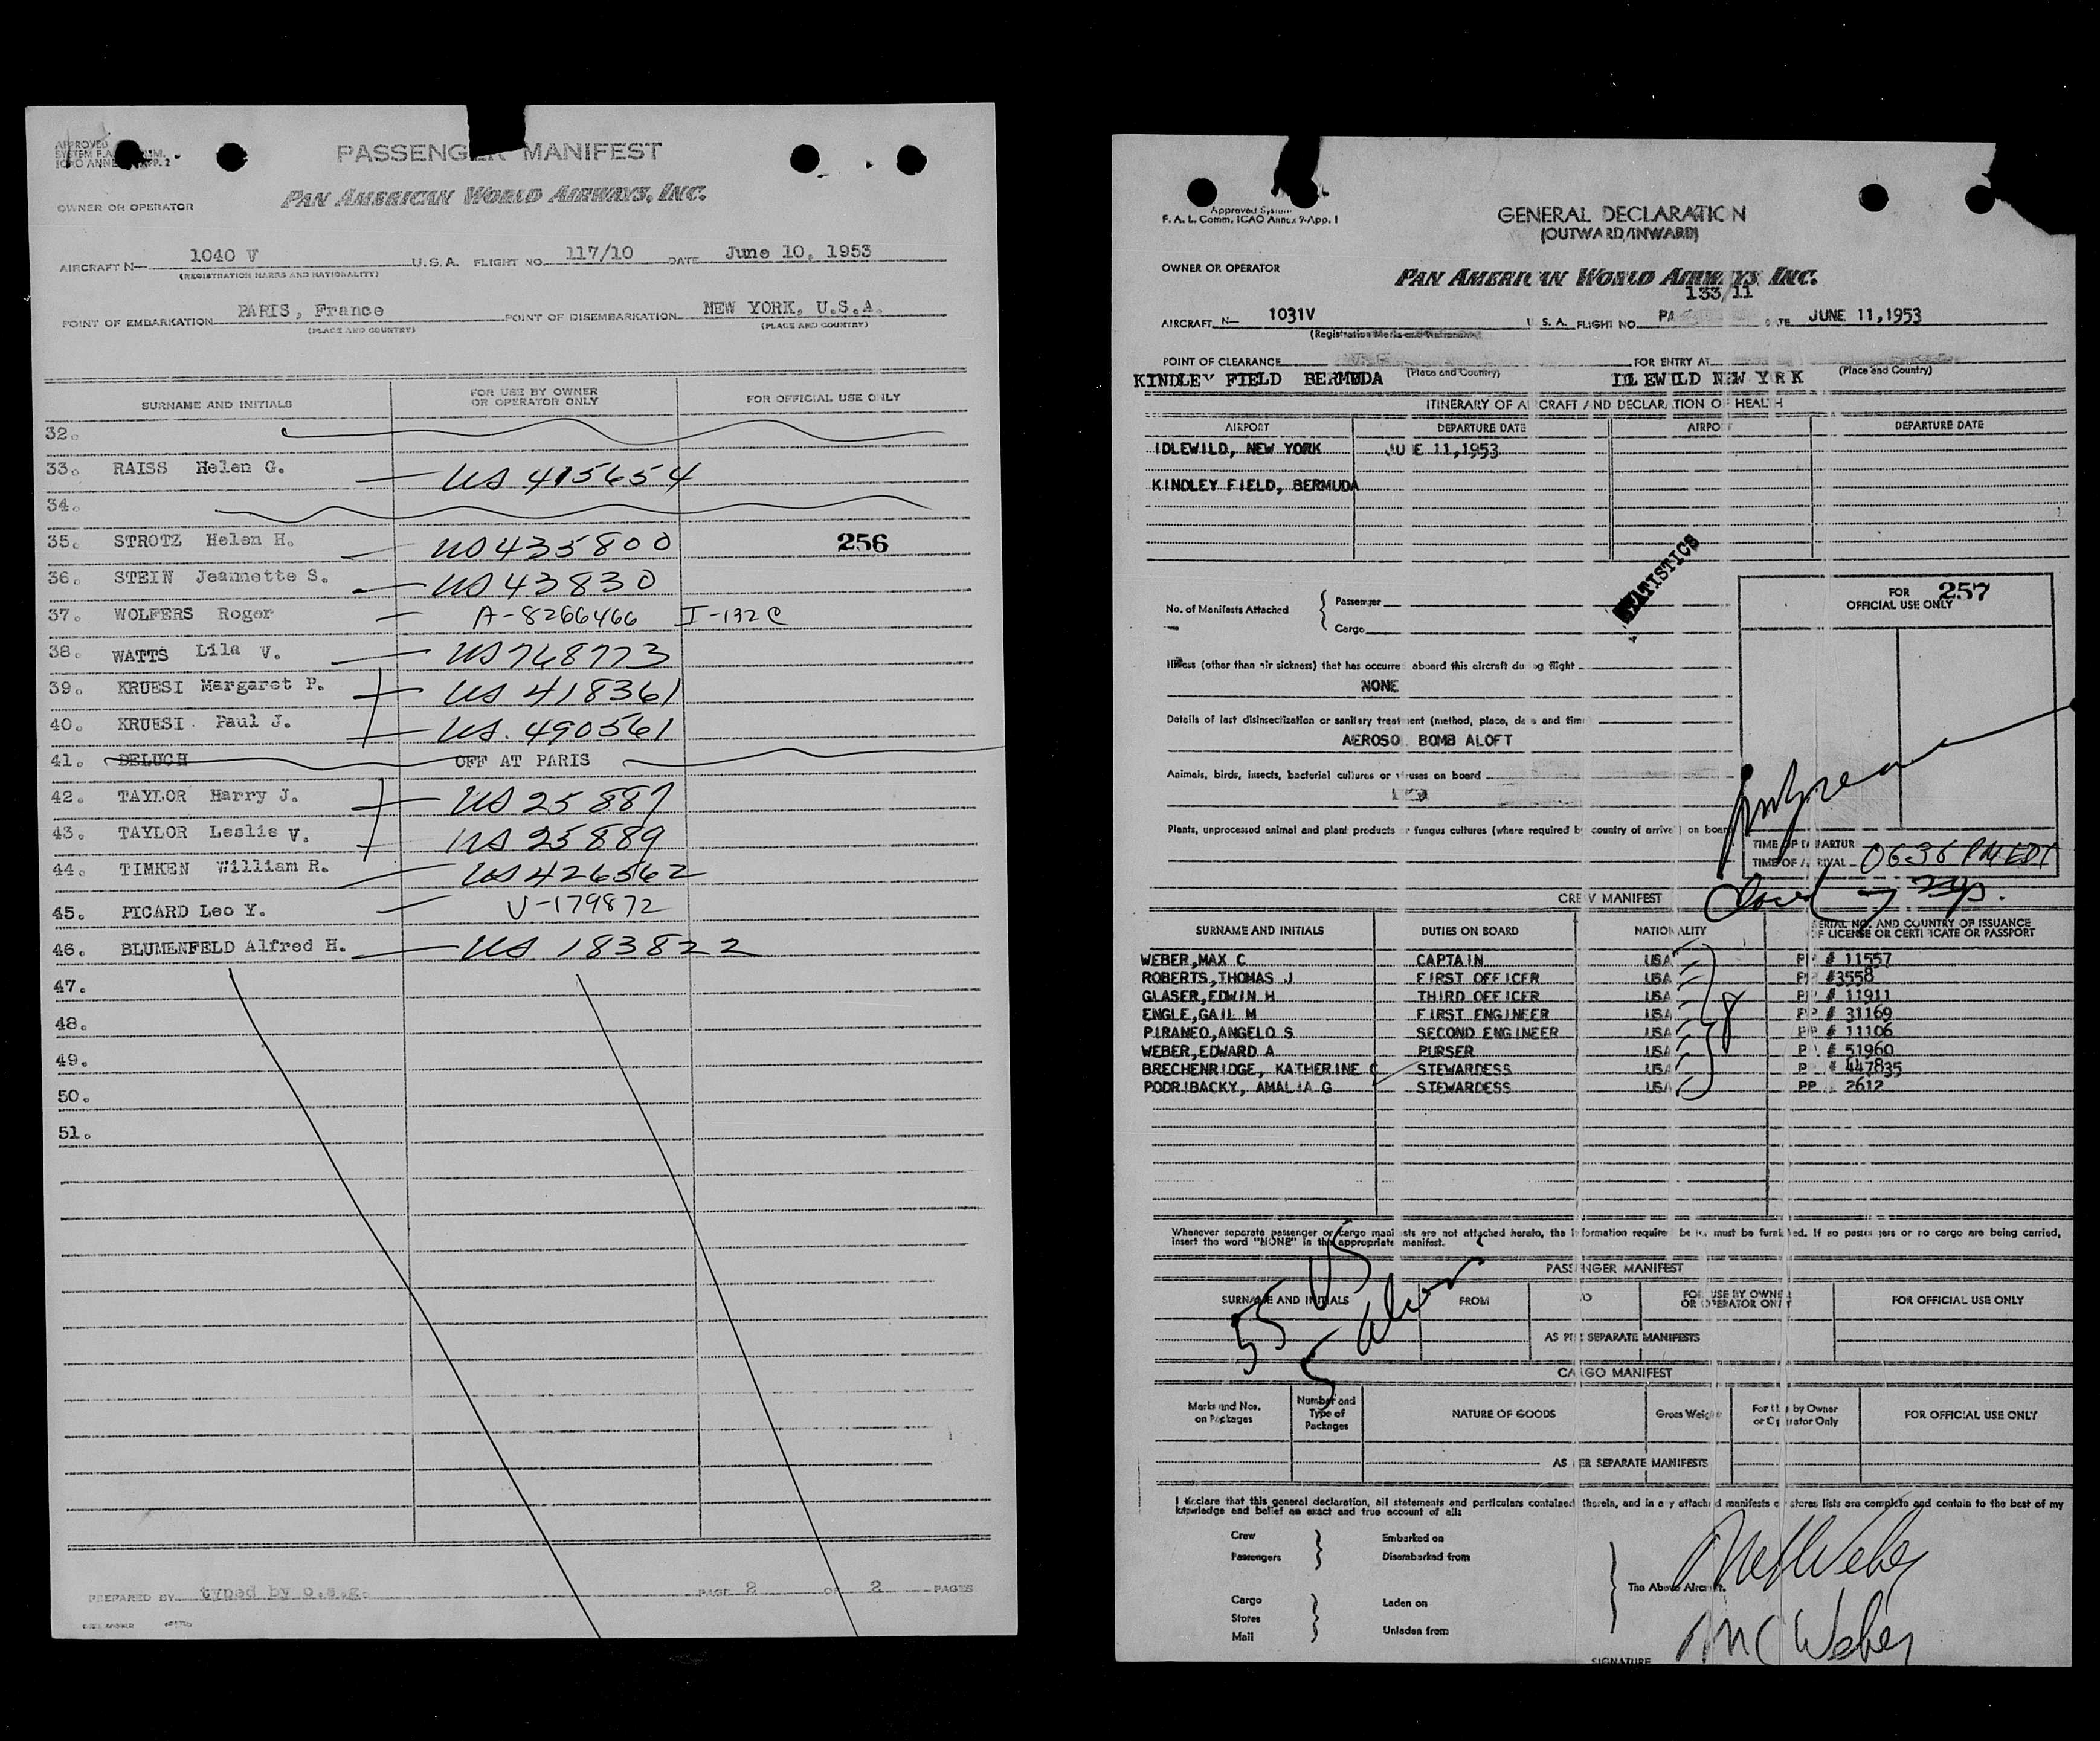 APPROVED
SYSTEM F.A.
ICAO ANNE
PASSENGER MANIFEST
OWNER OR OPERATOR PAN AMERICAN WORLD AIRWAYS, INC.
AIRCRAFT N— 1040 V U.S.A. FLIGHT NO. 117/10 DATE June 10, 1953
(REGISTRATION MARKS AND NATIONALITY)
POINT OF EMBARKATION PARIS, France POINT OF DISEMBARKATION NEW YORK, U.S.A.
(PLACE AND COUNTRY) (PLACE AND COUNTRY)
SURNAME AND INITIALS FOR USE BY OWNER OR OPERATOR ONLY FOR OFFICIAL USE ONLY
32.
33. RAISS Helen G. — US 415654
34.
35. STROTZ Helen H. — US 435800 256
36. STEIN Jeannette S. — US 43830
37. WOLFERS Roger — A-8266466 I-132C
38. WATTS Lila V. — US 748773
39. KRUESI Margaret P. — US 418361
40. KRUESI Paul J. — US. 490561
41. DELUCH OFF AT PARIS
42. TAYLOR Harry J. — US 25887
43. TAYLOR Leslie V. — US 25889
44. TIMKEN William R. — US 426562
45. PICARD Leo Y. — V-179872
46. BLUMENFELD Alfred H. — US 183822
47.
48.
49.
50.
51.
PREPARED BY typed by o.s.g. PAGE 2 OF 2 PAGES
Approved System
F. A. L. Comm. ICAO Annex 9-App. 1
GENERAL DECLARATION
(OUTWARD/INWARD)
OWNER OR OPERATOR PAN AMERICAN WORLD AIRWAYS, INC.
133/11
AIRCRAFT N— 1031V U. S. A. FLIGHT NO. PA DATE JUNE 11,1953
(Registration Marks and Nationality)
POINT OF CLEARANCE FOR ENTRY AT
KINDLEY FIELD BERMUDA (Place and Country) IDLEWILD NEW YORK (Place and Country)
ITINERARY OF AIRCRAFT AND DECLARATION OF HEALTH
AIRPORT DEPARTURE DATE AIRPORT DEPARTURE DATE
IDLEWILD, NEW YORK JUNE 11,1953
KINDLEY FIELD, BERMUDA
STATISTICS
No. of Manifests Attached Passenger
Cargo
FOR OFFICIAL USE ONLY 257
Illness (other than air sickness) that has occurred aboard this aircraft during flight
NONE
Details of last disinsectization or sanitary treatment (method, place, date and time)
AEROSOL BOMB ALOFT
Animals, birds, insects, bacterial cultures or viruses on board
Plants, unprocessed animal and plant products or fungus cultures (where required by country of arrival) on board
TIME OF DEPARTURE
TIME OF ARRIVAL 0636 PM EDT
CREW MANIFEST
SURNAME AND INITIALS DUTIES ON BOARD NATIONALITY SERIAL NO. AND COUNTRY OF ISSUANCE OF LICENSE OR CERTIFICATE OR PASSPORT
WEBER,MAX C CAPTAIN USA PP # 11557
ROBERTS,THOMAS J FIRST OFFICER USA PP #3558
GLASER,EDWIN H THIRD OFFICER USA PP # 11911
ENGLE,GAIL M FIRST ENGINEER USA PP # 31169
PIRANEO,ANGELO S SECOND ENGINEER USA PP # 11106
WEBER,EDWARD A PURSER USA PP # 51960
BRECHENRIDGE, KATHERINE C STEWARDESS USA PP # 447835
PODRIBACKY, AMALIA G STEWARDESS USA PP 2612
8
Whenever separate passenger or cargo manifests are not attached hereto, the information required below must be furnished. If no passengers or no cargo are being carried,
insert the word "NONE" in the appropriate manifest.
PASSENGER MANIFEST
SURNAME AND INITIALS FROM TO FOR USE BY OWNER OR OPERATOR ONLY FOR OFFICIAL USE ONLY
55 US
5 alien
AS PER SEPARATE MANIFESTS
CARGO MANIFEST
Marks and Nos. on Packages Number and Type of Packages NATURE OF GOODS Gross Weight For Use by Owner or Operator Only FOR OFFICIAL USE ONLY
AS PER SEPARATE MANIFESTS
I declare that this general declaration, all statements and particulars contained therein, and in any attached manifests or stores lists are complete and contain to the best of my
knowledge and belief an exact and true account of all:
Crew Embarked on
Passengers Disembarked from
The Above Aircraft.
Cargo Laden on
Stores
Mail Unladen from
SIGNATURE
MC Weber
MC Weber